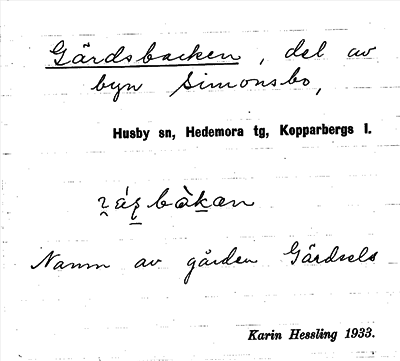 Gärdsbacken, del av
byn Simonsbo,
Husby sn, Hedemora tg, Kopparbergs l.
bàkæn
Namn av gården Gärdsels
Karin Hessling 1933.